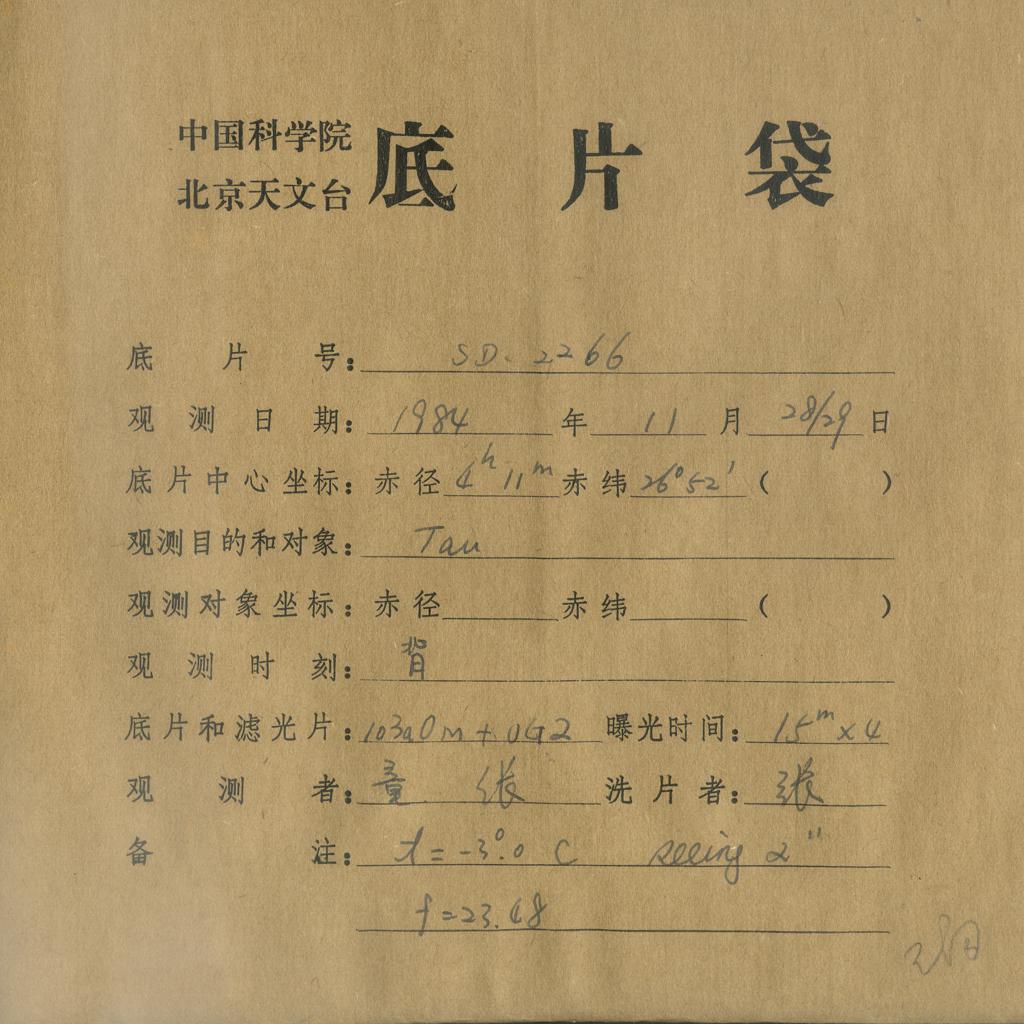 中国科学院
北京天文台
底片袋
底片号：SD. 2266
观测日期：1984年11月28/29日
底片中心坐标：赤径4h11m赤纬26°52′（ ）
观测目的和对象：Tau
观测对象坐标：赤径 赤纬 （ ）
观测时刻：背
底片和滤光片：103aOm+OG2 曝光时间：15m×4
观测者：童 张 洗片者：张
备注：t=-3°.0 C seeing 2″
f=23.48